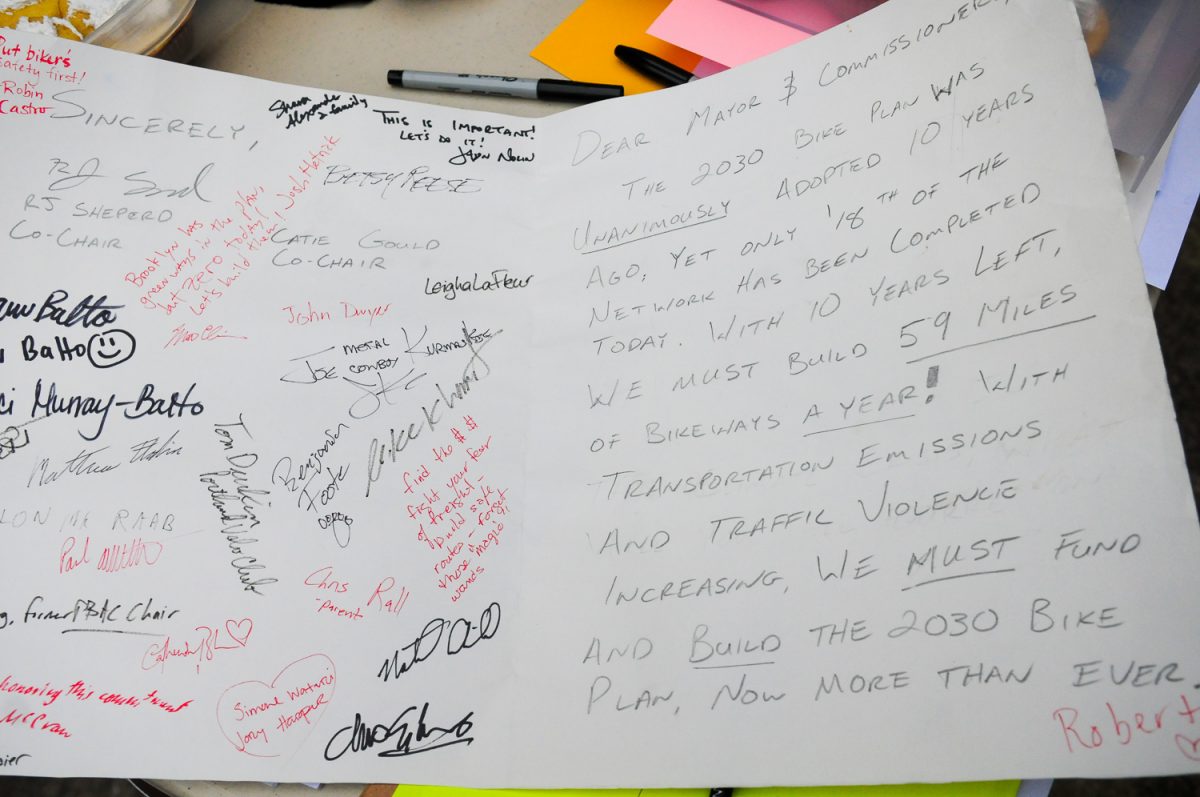 DEAR MAYOR & COMMISSIONERS,
THE 2030 BIKE PLAN WAS
UNANIMOUSLY ADOPTED 10 YEARS
AGO, YET ONLY '18TH OF THE
NETWORK HAS BEEN COMPLETED
TODAY. WITH 10 YEARS LEFT,
WE MUST BUILD 59 MILES
OF BIKEWAYS A YEAR! WITH
TRANSPORTATION EMISSIONS
AND TRAFFIC VIOLENCE
INCREASING, WE MUST FUND
AND BUILD THE 2030 BIKE
PLAN, NOW MORE THAN EVER.
Robert
Put biker's
safety first!
-Robin
Castro
SINCERELY,
RJ SHEPERD
CO-CHAIR
Shawn
Alexander
& family
THIS IS IMPORTANT!
LET'S DO IT!
BETSY REESE
CATIE GOULD
CO-CHAIR
Brooklyn has
greenways in the plan,
but zero today!
Let's build them! Josh Hetrick
Leigha LaFleur
John Dwyer
Balto
Balto
Murray-Balto
METAL
JOE COWBOY KURMASKIE
Matthew
Tom
Portland Velo Club
Benjamin
Foote
Mike Khung
find the $.$
fight your fear
of freight -
build safe
routes - forget
those "magic"
wands
RAAB
Paul
Chris Rall
-Parent
former PBAC Chair
honoring this commitment
Simone
Jory Hooper